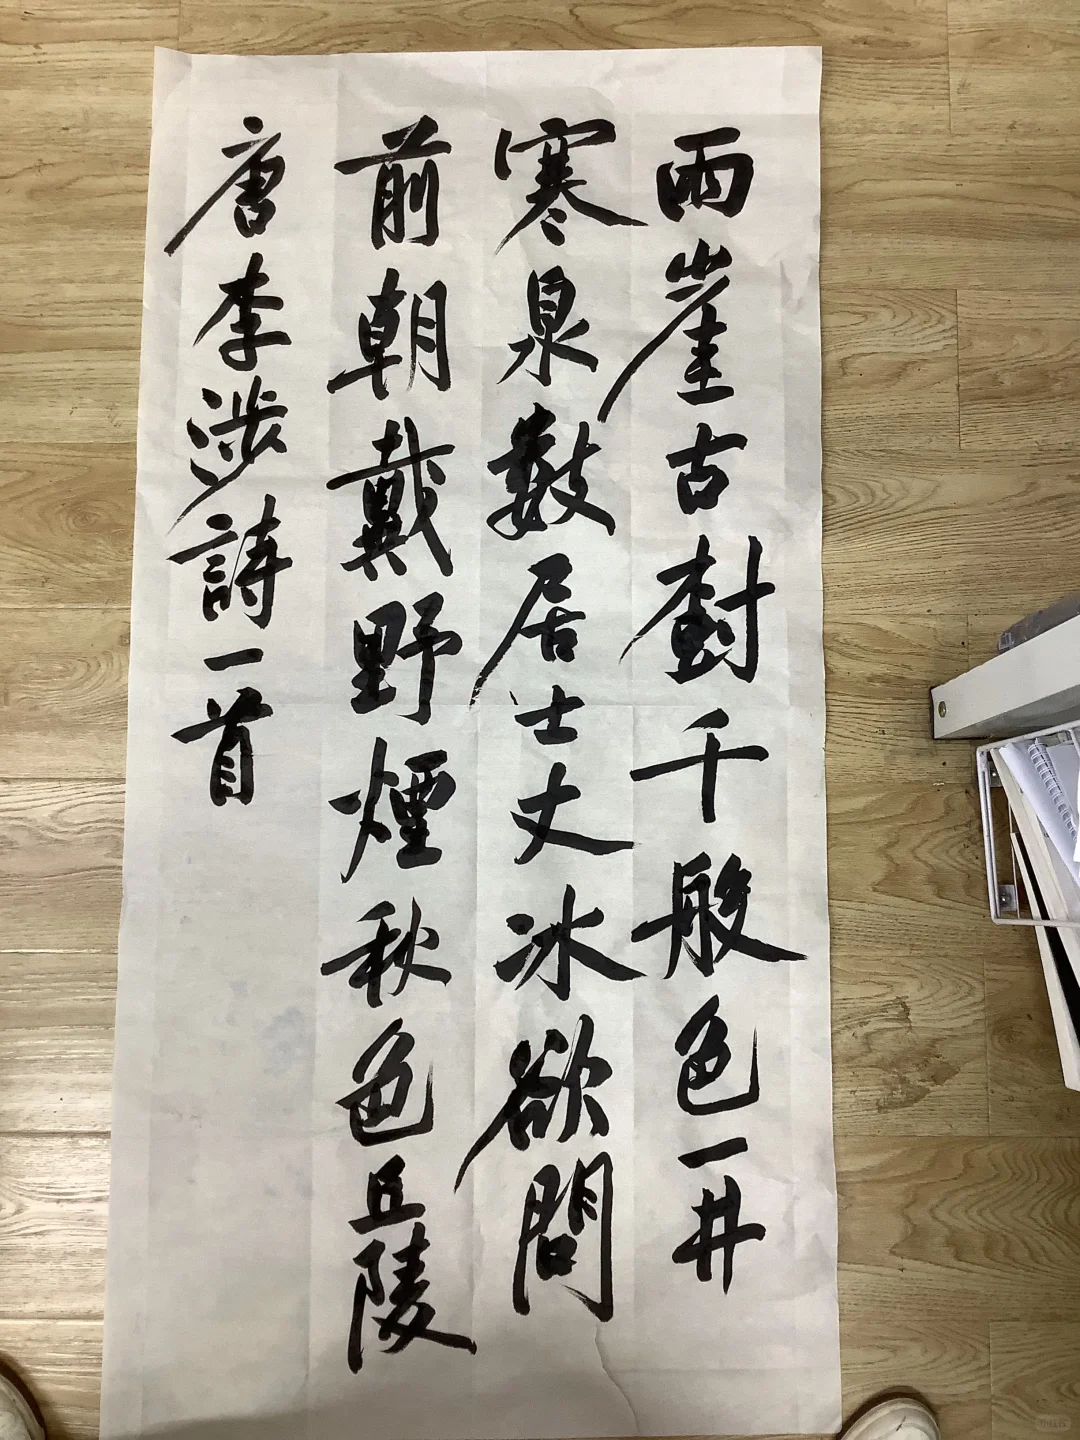 兩崖古樹千般色一井
寒泉數居士丈冰欲問
前朝戴野煙秋色丘陵
唐李涉詩一首